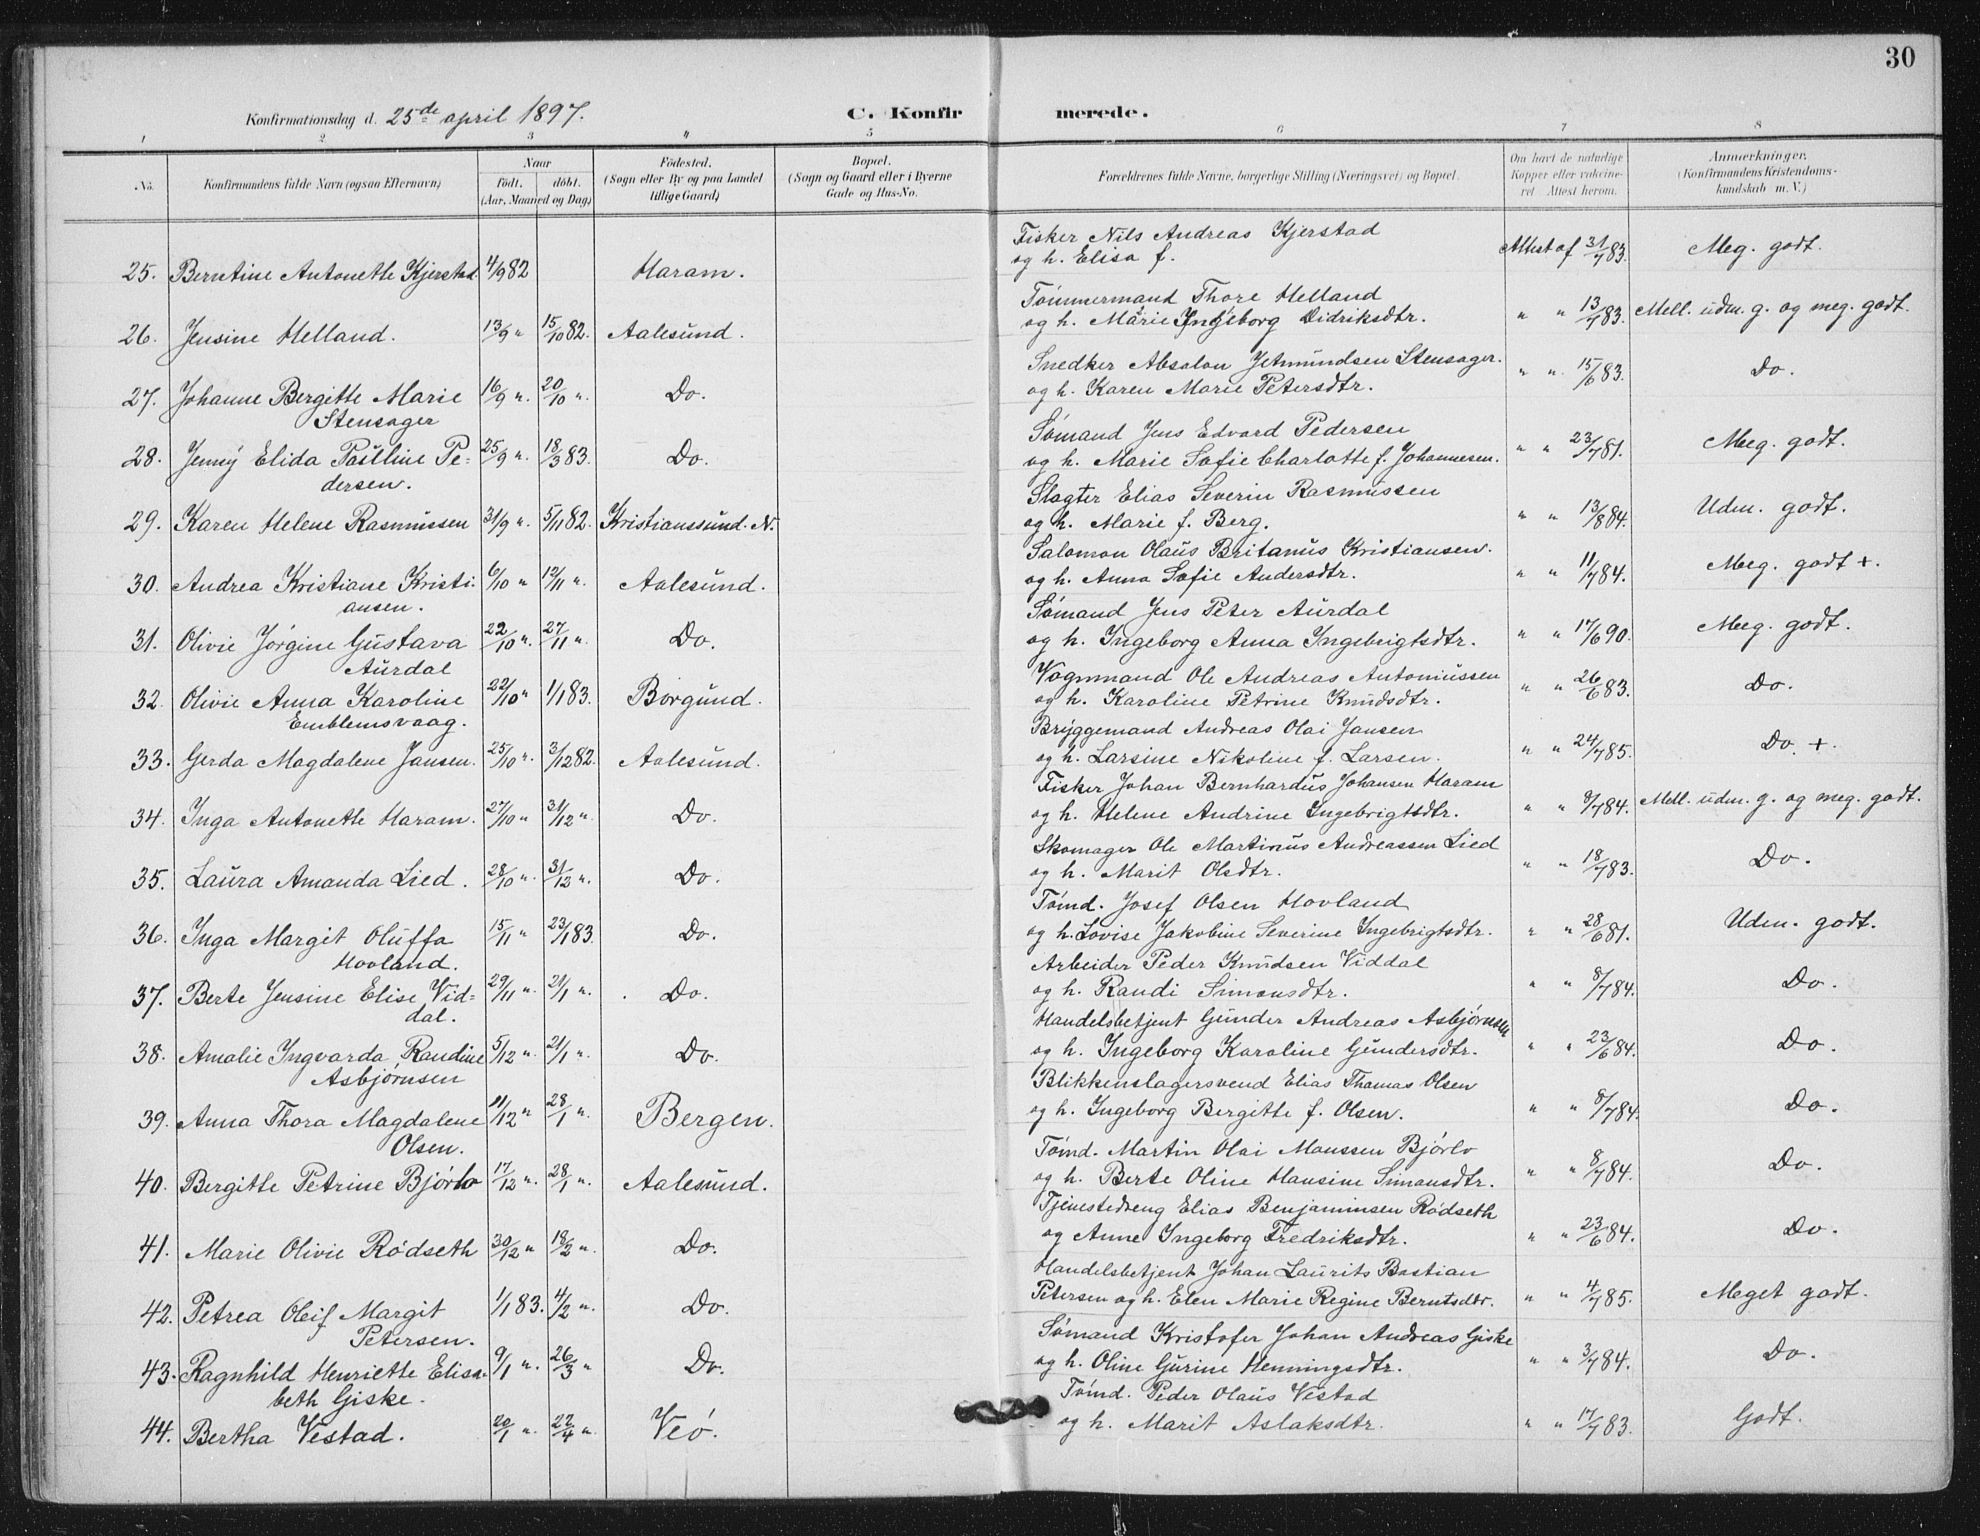 30
Konfirmationsdag d. 25de april 1897.
C. Konfirmerede.
1 2 3 4 5 6 7 8
No.
Konfirmandens fulde Navn (ogsaa Efternavn)
Naar
födt. döbt.
(Aar, Maaned og Dag)
Födested.
(Sogn eller By og paa Landet
tillige Gaard)
Bopæl.
(Sogn og Gaard eller i Byerne
Gade og Hus-No.
Forældrenes fulde Navne, borgerlige Stilling (Næringsvei) og Bopæl.
Om havt de naturlige
Kopper eller vakcine-
ret Attest herom.
Anmærkninger.
(Konfirmandens Kristendoms-
kundskab m. V.)
Fisker Nils Andreas Kjerstad
25. Berntine Antonette Kjerstad 4/9 82 Haram. og h. Elisa f. Attest af 31/7 83. Meg. godt.
Tömmermand Thore Helland
26. Jensine Helland. 13/9 " 15/10 82. Aalesund. og h. Marie Ingeborg Didriksdtr. " " 13/7 83. Mell. udm. g. og meg. godt.
Snedker Absalon Jetmundsen Stensager.
27. Johanne Bergitte Marie 16/9 ". 20/10 ". Do. og h. Karen Marie Petersdtr. " " 15/6 83. Do.
Stensager
Sömand Jens Edvard Pedersen
28. Jenny Elida Pauline Pe- 25/9 ". 18/3 83. Do. og h. Marie Sofie Charlotte f. Johannesen. " " 23/7 81. Meg. godt.
dersen.
Slagter Elias Severin Rasmussen
29. Karen Helene Rasmussen 31/9 ". 5/11 82. Kristianssund. N. og h. Marie f. Berg. " " 13/8 84. Udm. godt.
Salomon Olaus Britanus Kristiansen.
30. Andrea Kristiane Kristi- 6/10 " 12/11 ". Aalesund. og h. Anna Sofie Andersdtr. " " 11/7 84. Meg. godt +.
ansen.
Sömand Jens Peter Aurdal
31. Olivie Jörgine Gustava 22/10 ". 27/11 ". Do. og h. Ingeborg Anna Ingebrigtsdtr. " " 17/6 90. Meg. godt.
Aurdal
Vognmand Ole Andreas Antoniussen
32. Olivie Anna Karoline 22/10 " 1/1 83. Borgund. og h. Karoline Petrine Knudsdtr. " " 26/6 83. Do.
Emblemsvaag.
Bryggemand Andreas Olai Jansen
33. Gerda Magdalene Jansen. 25/10 ". 3/12 82. Aalesund. og h. Larsine Nikoline f. Larsen. " " 24/7 85. Do. +.
Fisker Johan Bernhardus Johansen Haram
34. Inga Antonette Haram. 27/10 " 31/12 ". Do. og h. Helene Andrine Ingebrigtsdtr. " " 8/7 84. Mell. udm. g. og meg. godt.
Skomager Ole Martinus Andreassen Lied
35. Laura Amanda Lied. 28/10 ". 31/12 ". Do. og h. Marit Olsdtr. " " 18/7 83. Do.
Tömd. Josef Olsen Hovland
36. Inga Margit Oluffa 15/11 " 23/1 83. Do. og h. Lovise Jakobine Severine Ingebrigtsdtr. " " 28/6 81. Udm. godt.
Hovland.
Arbeider Peder Knudsen Viddal
37. Berte Jensine Elise Vid- 29/11 ". 21/1 ". Do. og h. Randi Simonsdtr. " " 8/7 84. Do.
dal.
Handelsbetjent Gunder Andreas Asbjørnsen
38. Amalie Ingvarda Randine 5/12 ". 21/1 ". Do. og h. Ingeborg Karoline Gundersdtr. " " 23/6 84. Do.
Asbjørnsen
Blikkenslagersvend Elias Thomas Olsen
39. Anna Thora Magdalene 11/12 " 28/1 ". Bergen. og h. Ingeborg Bergitte f. Olsen. " " 8/7 84. Do.
Olsen.
Tömd. Martin Olai Monssen Bjørlo
40. Bergitte Petrine Bjørlo 17/12 ". 28/1 ". Aalesund. og h. Berte Oline Hansine Simonsdtr. " " 8/7 84. Do.
Tjenestedreng Elias Benjaminsen Rödseth
41. Marie Olivie Rödseth 30/12 " 18/2 ". Do. og Anne Ingeborg Fredriksdtr. " " 23/6 84. Do.
Handelsbetjent Johan Laurits Bastian
42. Petrea Oleif Margit 1/1 83. 4/2 ". Do. Petersen og h. Elen Marie Regine Berntsdtr. " " 4/7 85. Meget godt.
Petersen.
Sömand Kristofer Johan Andreas Giske
43. Ragnhild Henriette Elisa- 9/1 ". 26/3 " Do. og h. Oline Gurine Henningsdtr. " " 3/7 84. Do.
beth Giske.
Tömd. Peder Olaus Vestad
44. Bertha Vestad. 20/1 ". 22/4 ". Veö. og h. Marit Aslaksdtr. " " 17/7 83. Godt.